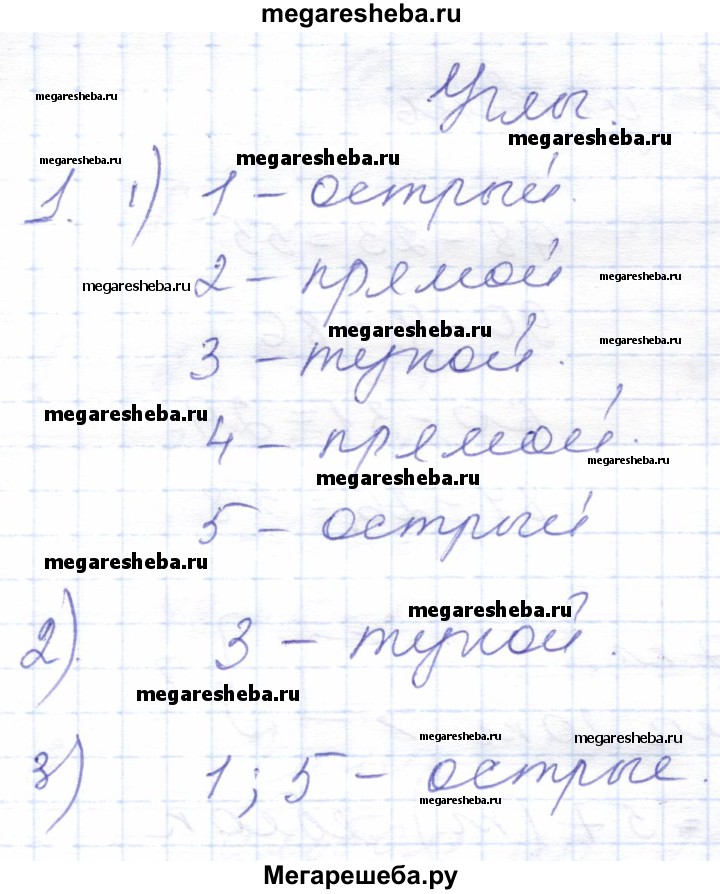 megaresheba.ru
Углы.
megaresheba.ru
megaresheba.ru
megaresheba.ru megaresheba.ru
1. 1) 1 - острый.
2 - прямой
megaresheba.ru megaresheba.ru
megaresheba.ru megaresheba.ru
3 - тупой.
megaresheba.ru
4 - прямой.
megaresheba.ru megaresheba.ru
5 - острый
megaresheba.ru
megaresheba.ru
2). 3 - тупой.
megaresheba.ru
megaresheba.ru megaresheba.ru
3) 1; 5 - острые.
megaresheba.ru
Мегарешеба.ру